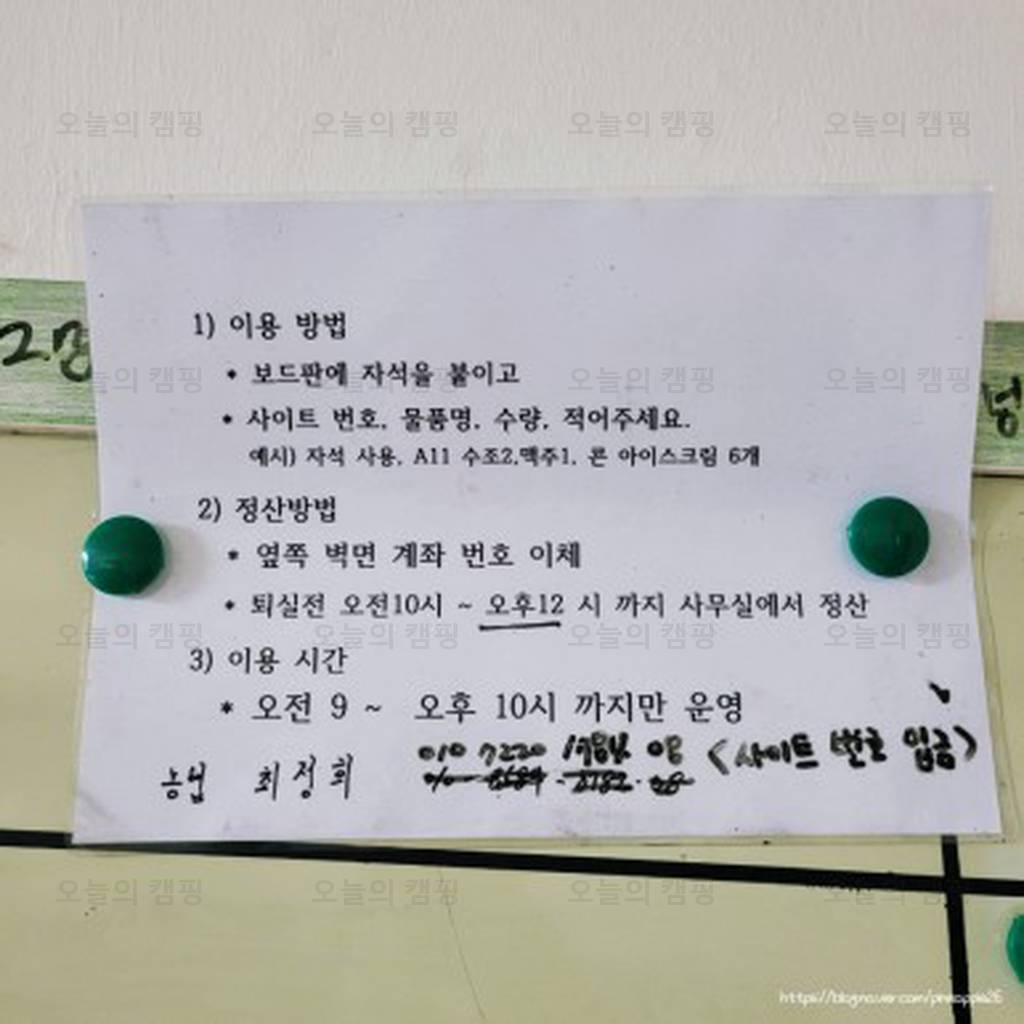 오늘의 캠핑 오늘의 캠핑 오늘의 캠핑 오늘의 캠핑
1) 이용 방법
• 보드판에 자석을 붙이고
• 사이트 번호, 물품명, 수량, 적어주세요.
예시) 자석 사용, A11 수조2,맥주1, 콘 아이스크림 6개
2) 정산방법
• 옆쪽 벽면 계좌 번호 이체
• 퇴실전 오전10시 ~ 오후12 시 까지 사무실에서 정산
3) 이용 시간
• 오전 9 ~ 오후 10시 까지만 운영
010 7220 08 (사이트 번호 입금)
농협 최정희
오늘의 캠핑 오늘의 캠핑 오늘의 캠핑
https://blog.naver.com/pineapple26